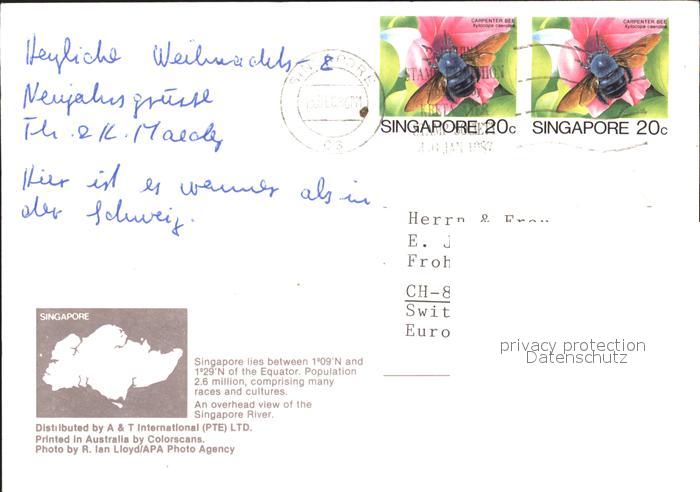 Herzliche Weihnachts- &
Neujahrsgrüsse
Th. & K. Maeder
Hier ist es wärmer als in
der Schweiz.
CARPENTER BEE
Xylocopa caerulea
SINGAPORE 20c
CARPENTER BEE
Xylocopa caerulea
SINGAPORE 20c
SINGAPORE
JAN 1987
Herrn & Frau
E. J
Froh
CH-8
Swit
Euro
privacy protection
Datenschutz
SINGAPORE
Singapore lies between 1º09'N and
1º29'N of the Equator. Population
2.6 million, comprising many
races and cultures.
An overhead view of the
Singapore River.
Distributed by A & T International (PTE) LTD.
Printed in Australia by Colorscans.
Photo by R. Ian Lloyd/APA Photo Agency